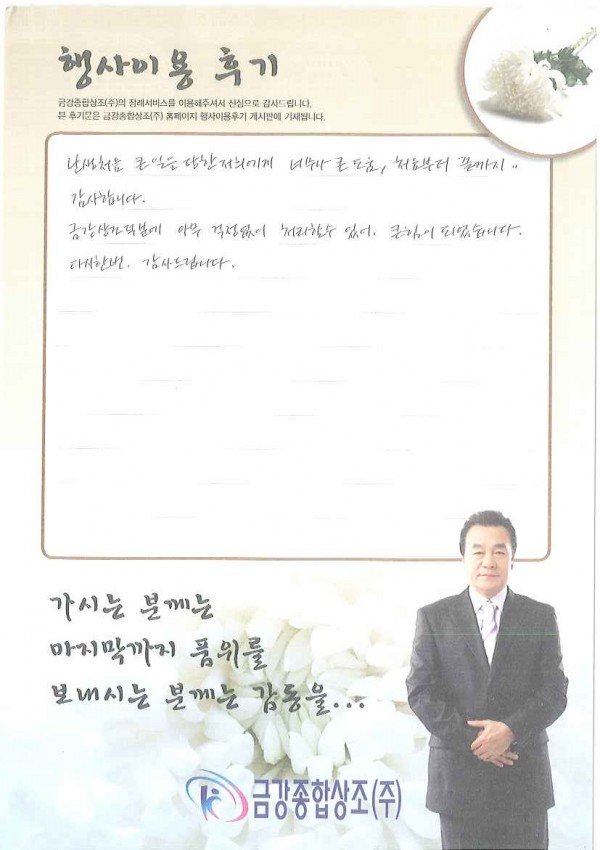 행사이용 후기
금강종합상조(주)의 장례서비스를 이용해주셔서 진심으로 감사드립니다.
본 후기문은 금강종합상조(주) 홈페이지 행사이용후기 게시판에 기재됩니다.
난생처음 큰일을 당한 저희에게 너무나 큰 도움, 처음부터 끝까지..
감사합니다.
금강상조 덕분에 아무 걱정없이 처리할수 있어. 큰힘이 되었습니다.
다시한번. 감사드립니다.
가시는 분께는
마지막까지 품위를
보내시는 분께는 감동을...
금강종합상조(주)